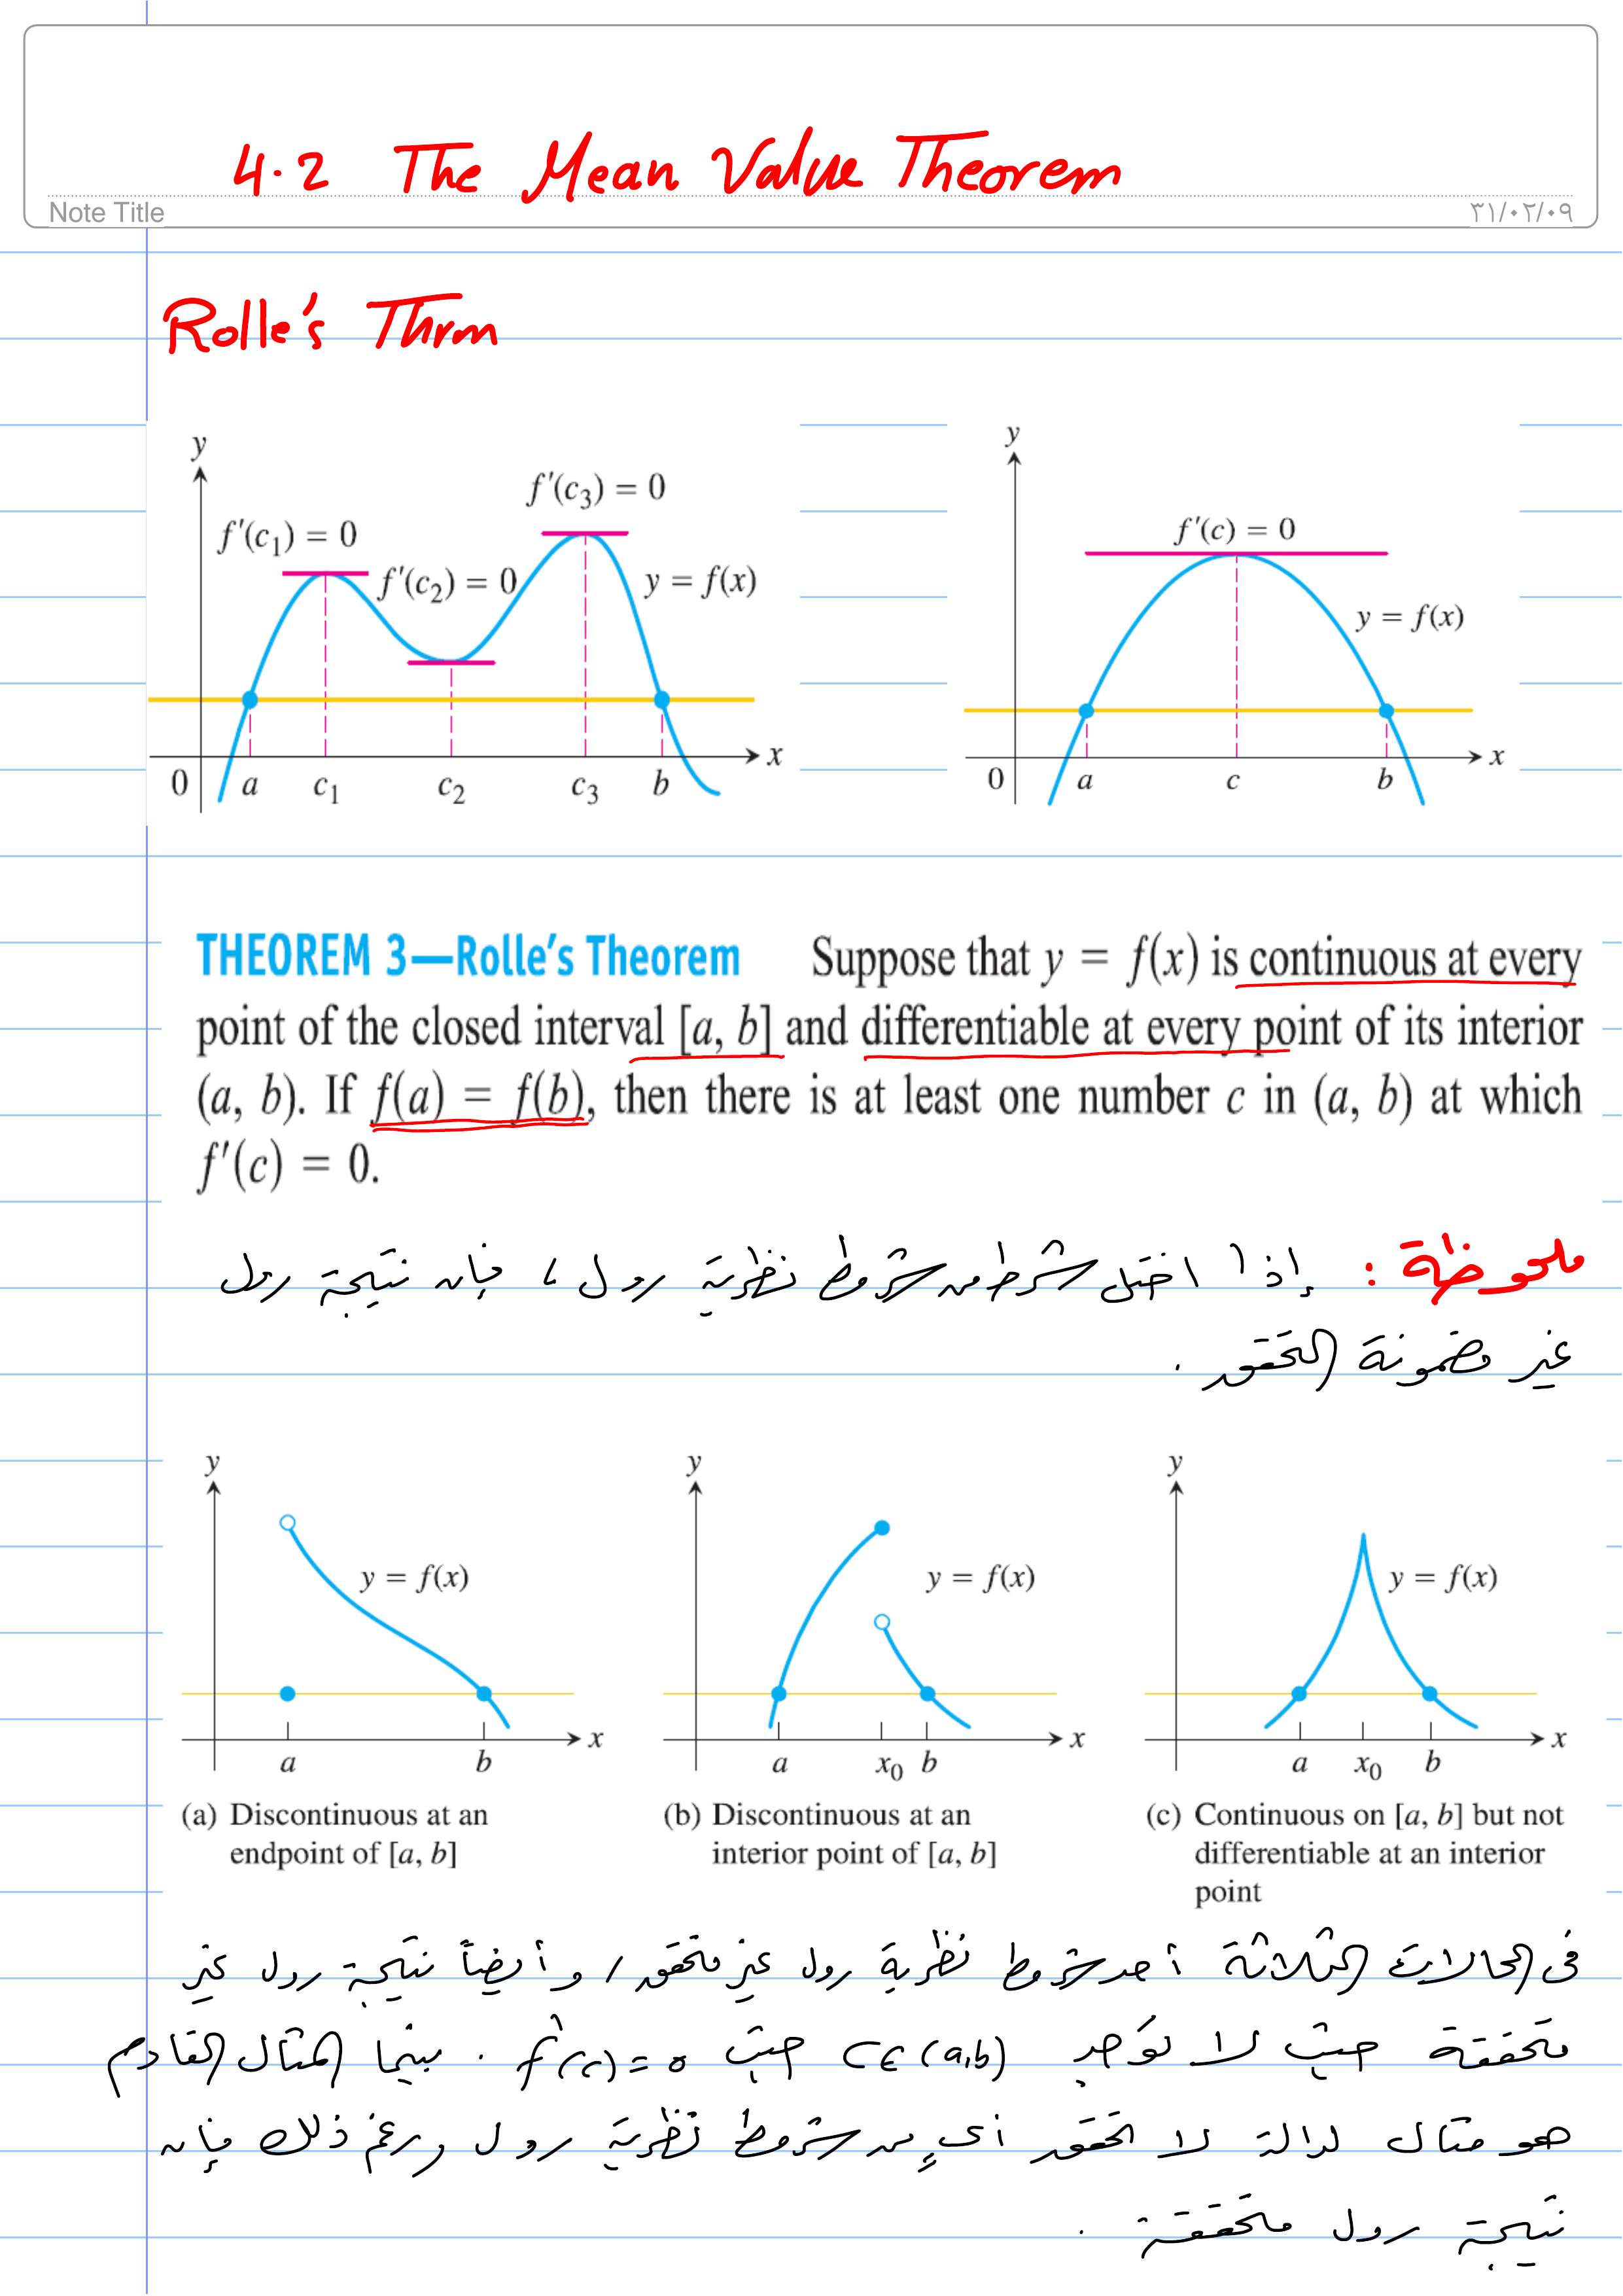 4.2 The Mean Value Theorem
Note Title
٣١/٠٢/٠٩
Rolle's Thrm
y
f'(c₁) = 0
f'(c₂) = 0
f'(c₃) = 0
y = f(x)
0 a c₁ c₂ c₃ b x
y
f'(c) = 0
y = f(x)
0 a c b x
THEOREM 3—Rolle's Theorem Suppose that y = f(x) is continuous at every
point of the closed interval [a, b] and differentiable at every point of its interior
(a, b). If f(a) = f(b), then there is at least one number c in (a, b) at which
f'(c) = 0.
ملحوظة : إذا اختل شرط من شروط نظرية رول ، فإن نتيجة رول
غير مضمونة التحقق .
y
y = f(x)
a b x
(a) Discontinuous at an
endpoint of [a, b]
y
y = f(x)
a x₀ b x
(b) Discontinuous at an
interior point of [a, b]
y
y = f(x)
a x₀ b x
(c) Continuous on [a, b] but not
differentiable at an interior
point
فى الحالات الثلاثة أحد شروط نظرية رول غير متحقق / وأيضاً نتيجة رول غير
متحققة حيث لا توجد c∈(a,b) حيث f'(c)=0 . بينما المثال القادم
هو مثال لدالة لا تحقق أى من شروط نظرية رول ورغم ذلك فإن
نتيجة رول متحققة .